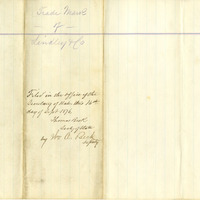 Trade Mark
of
Lindley & Co
Filed in the office of the
Secretary of State this 26th
day of Sept. 1876
Thomas Beck
Secty of State
by Wm. B. Beck
Deputy